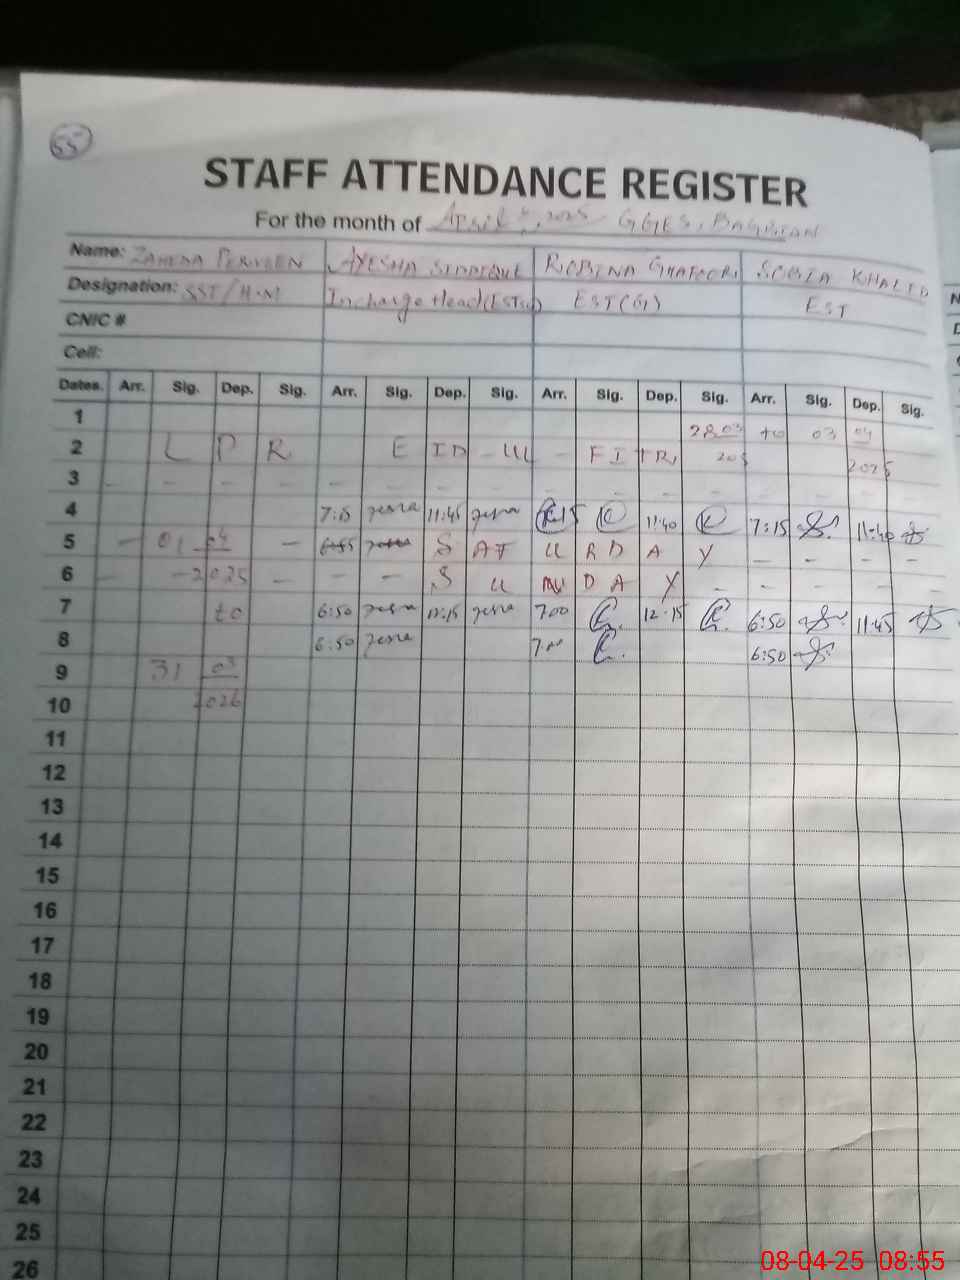 55
STAFF ATTENDANCE REGISTER
For the month of April, 2025 GGES, BAGRIAN
Name: ZAHEDA PERVEEN AYESHA SIDDIQUE ROBINA GHAFOOR SOBIA KHALID
Designation: SST/H.M Incharge Head (EST) EST(G) EST
CNIC #
Cell:
Dates. Arr. Sig. Dep. Sig. Arr. Sig. Dep. Sig. Arr. Sig. Dep. Sig. Arr. Sig. Dep. Sig.
1 28 03 to 03 04
2 L P R EID - UL - FITR 2025
3 - - - - - - - -
4 7:15 11:45 11:40 7:15 11:40
5 - 01 04 - S A T U R D A Y - - - -
6 - - 2025 - - - S U N D A Y - - - -
7 to 6:50 12:15 7:00 12:15 6:50 11:45
8 6:50 7:00 6:50
9 31 03
10 2026
11
12
13
14
15
16
17
18
19
20
21
22
23
24
25
26
08-04-25 08:55